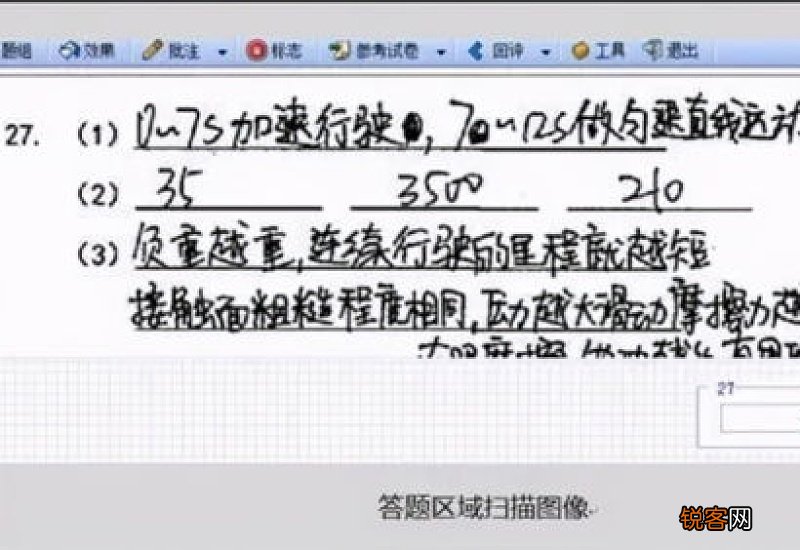 题组 效果 批注 标志 参考试卷 回评 工具 退出
27. (1) 0~7s加速行驶, 7~12s做匀速直线运动
(2) 35 3500 210
(3) 负重越重,连续行驶的里程就越短
接触面粗糙程度相同,压力越大滑动摩擦力越
27
答题区域扫描图像
锐客网